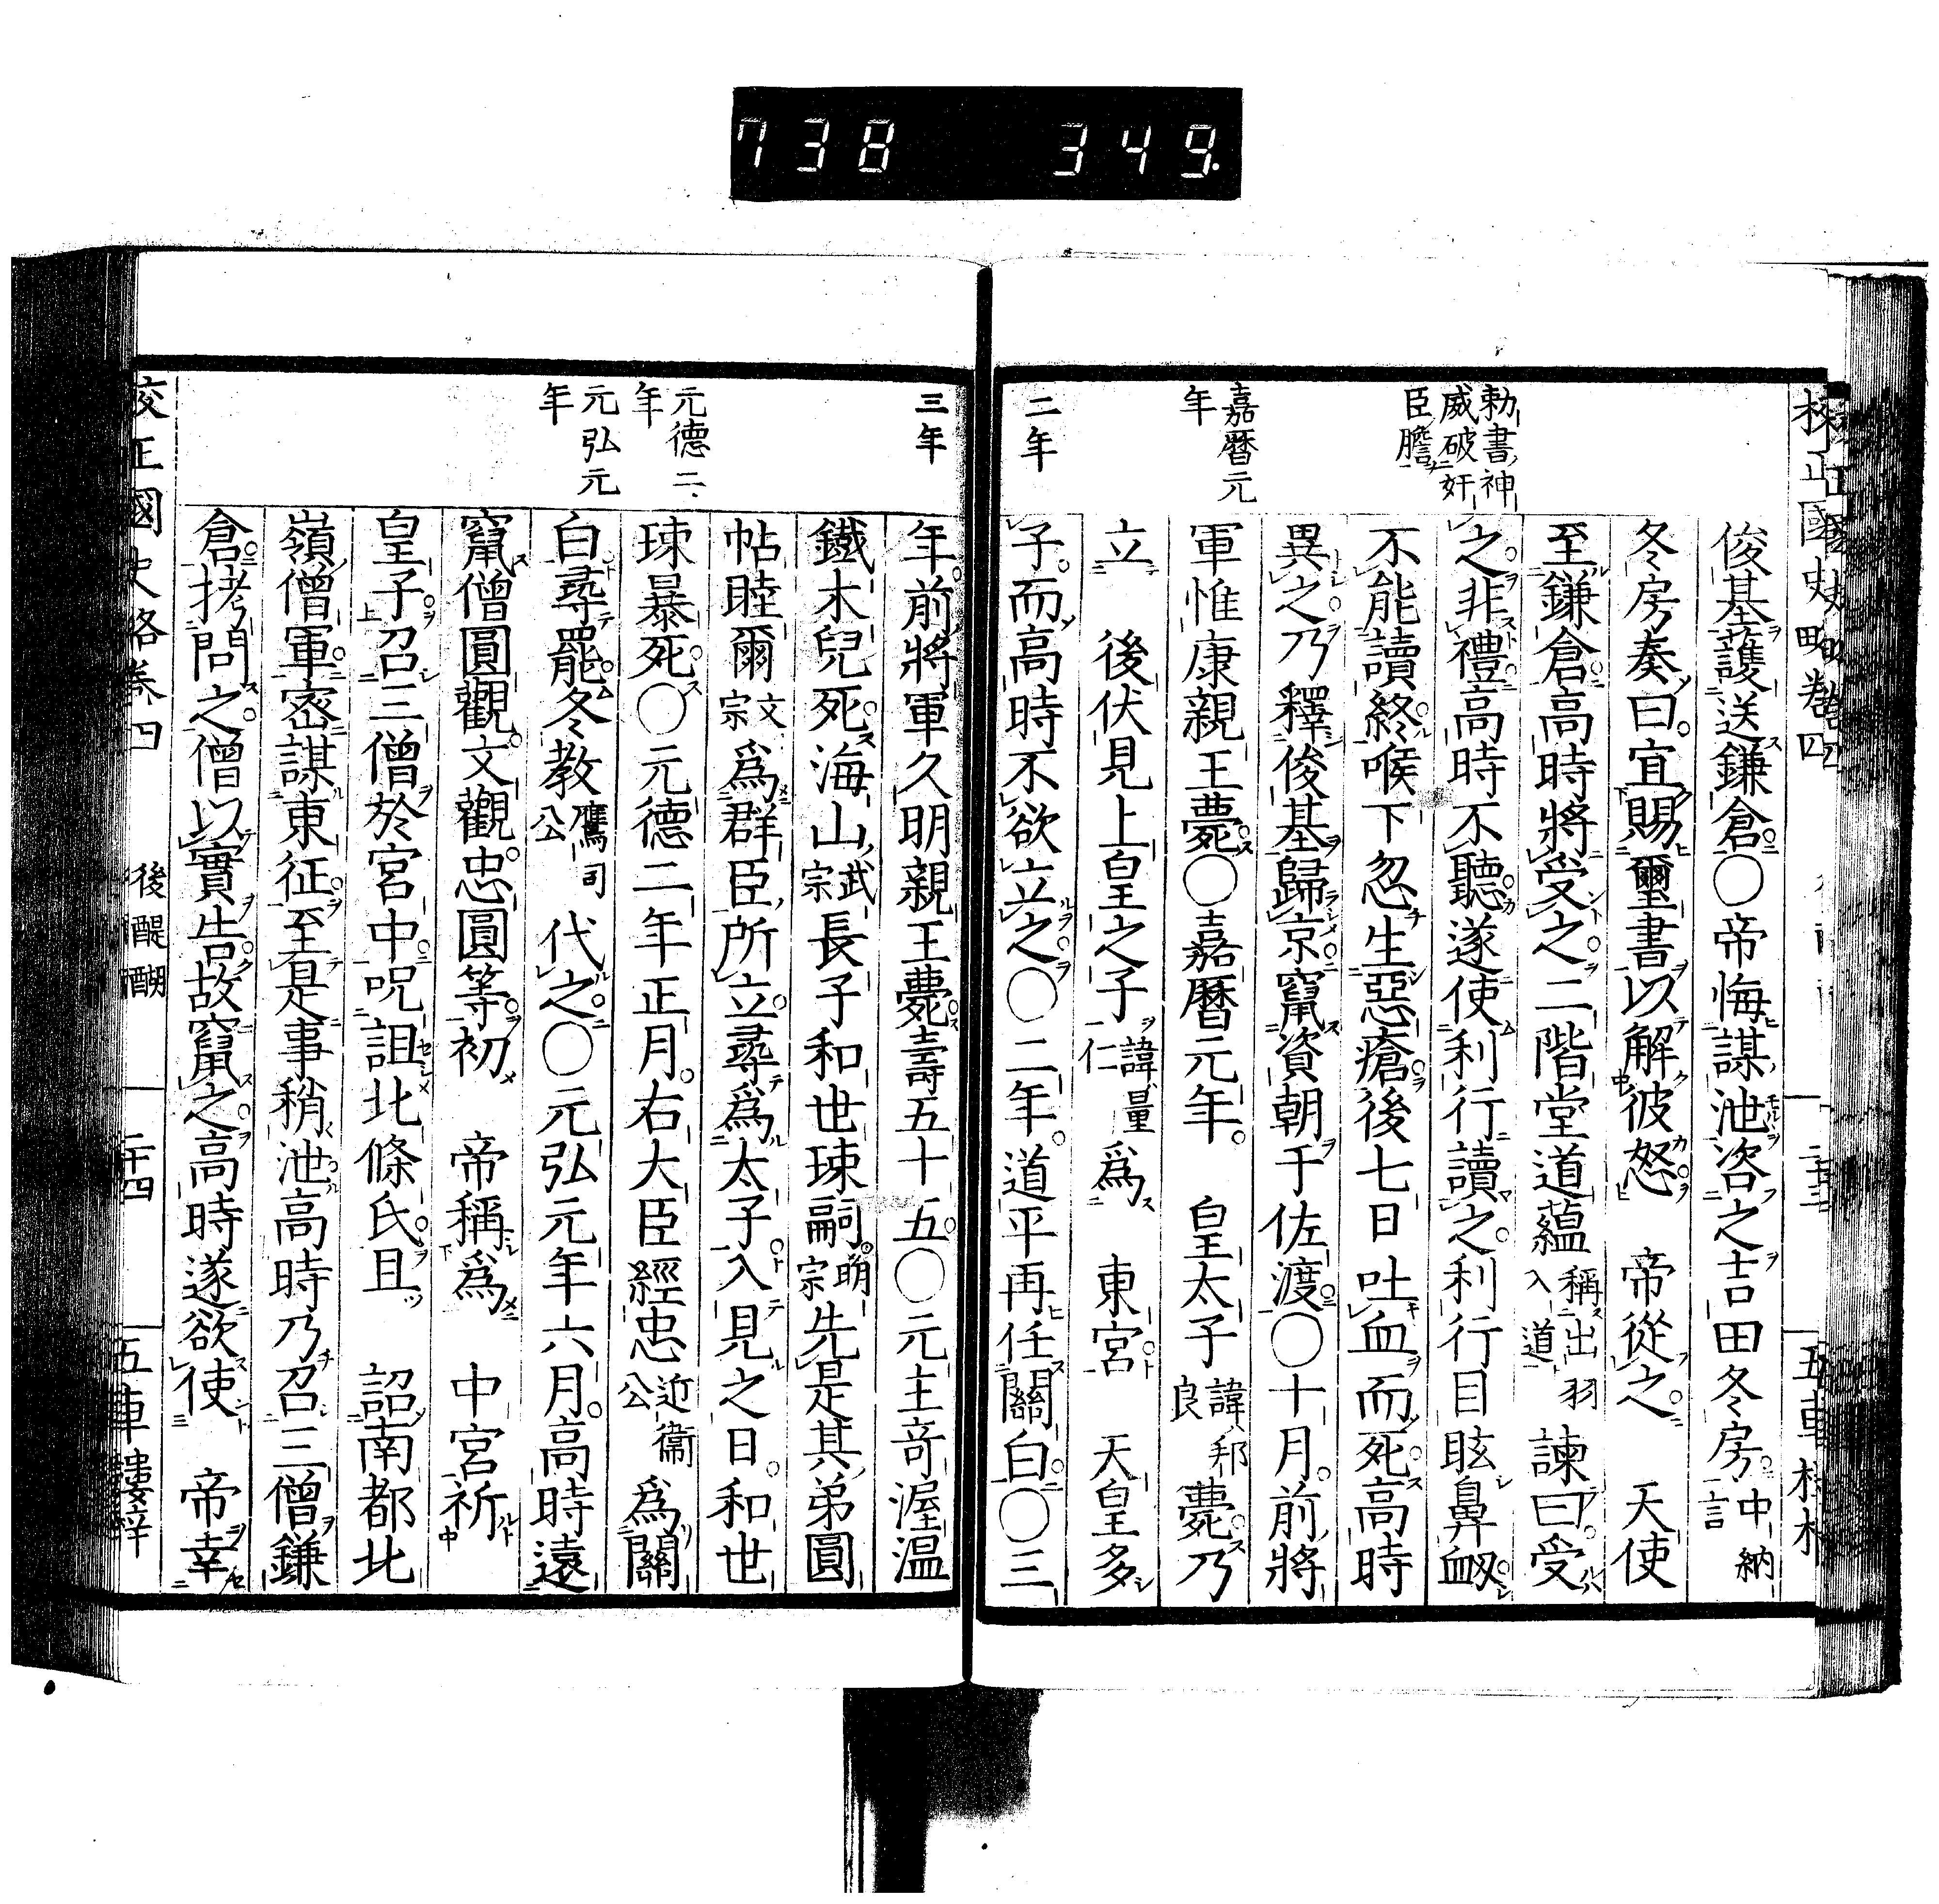 738 349
校正國史略卷四
俊基護送鎌倉〇帝悔謀池咨之吉田冬房中納言
冬房奏曰宜賜璽書以解彼怒 帝從之 天使
至鎌倉高時將受之二階堂道蘊稱出羽入道諫曰受
之非禮高時不聽遂使利行讀之利行目眩鼻衂
不能讀終喉下忽生惡瘡後七日吐血而死高時
異之乃釋俊基歸京竄資朝于佐渡〇十月前將
軍惟康親王薨〇嘉曆元年 皇太子諱邦良薨乃
立 後伏見上皇之子諱量仁爲 東宮 天皇多
子而高時不欲立之〇二年道平再任關白〇三
勅書神威破奸臣膽
嘉曆元年
二年
年前將軍久明親王薨壽五十五〇元主竒渥温
鐵木兒死海山武宗長子和世㻋嗣明宗先是其弟圓
帖睦爾文宗爲群臣所立尋爲太子入見之日和世
㻋暴死〇元德二年正月右大臣經忠近衞公爲關
白尋罷冬教鷹司公代之〇元弘元年六月高時遠
竄僧圓觀文觀忠圓等初 帝稱爲 中宮祈
皇子召三僧於宮中呪詛北條氏且 詔南都北
嶺僧軍密謀東征至是事稍泄高時乃召三僧鎌
倉拷問之僧以實告故竄之高時遂欲使 帝幸
三年
元德二年
元弘元年
校正國史略卷四 後醍醐 二十四 五車樓梓